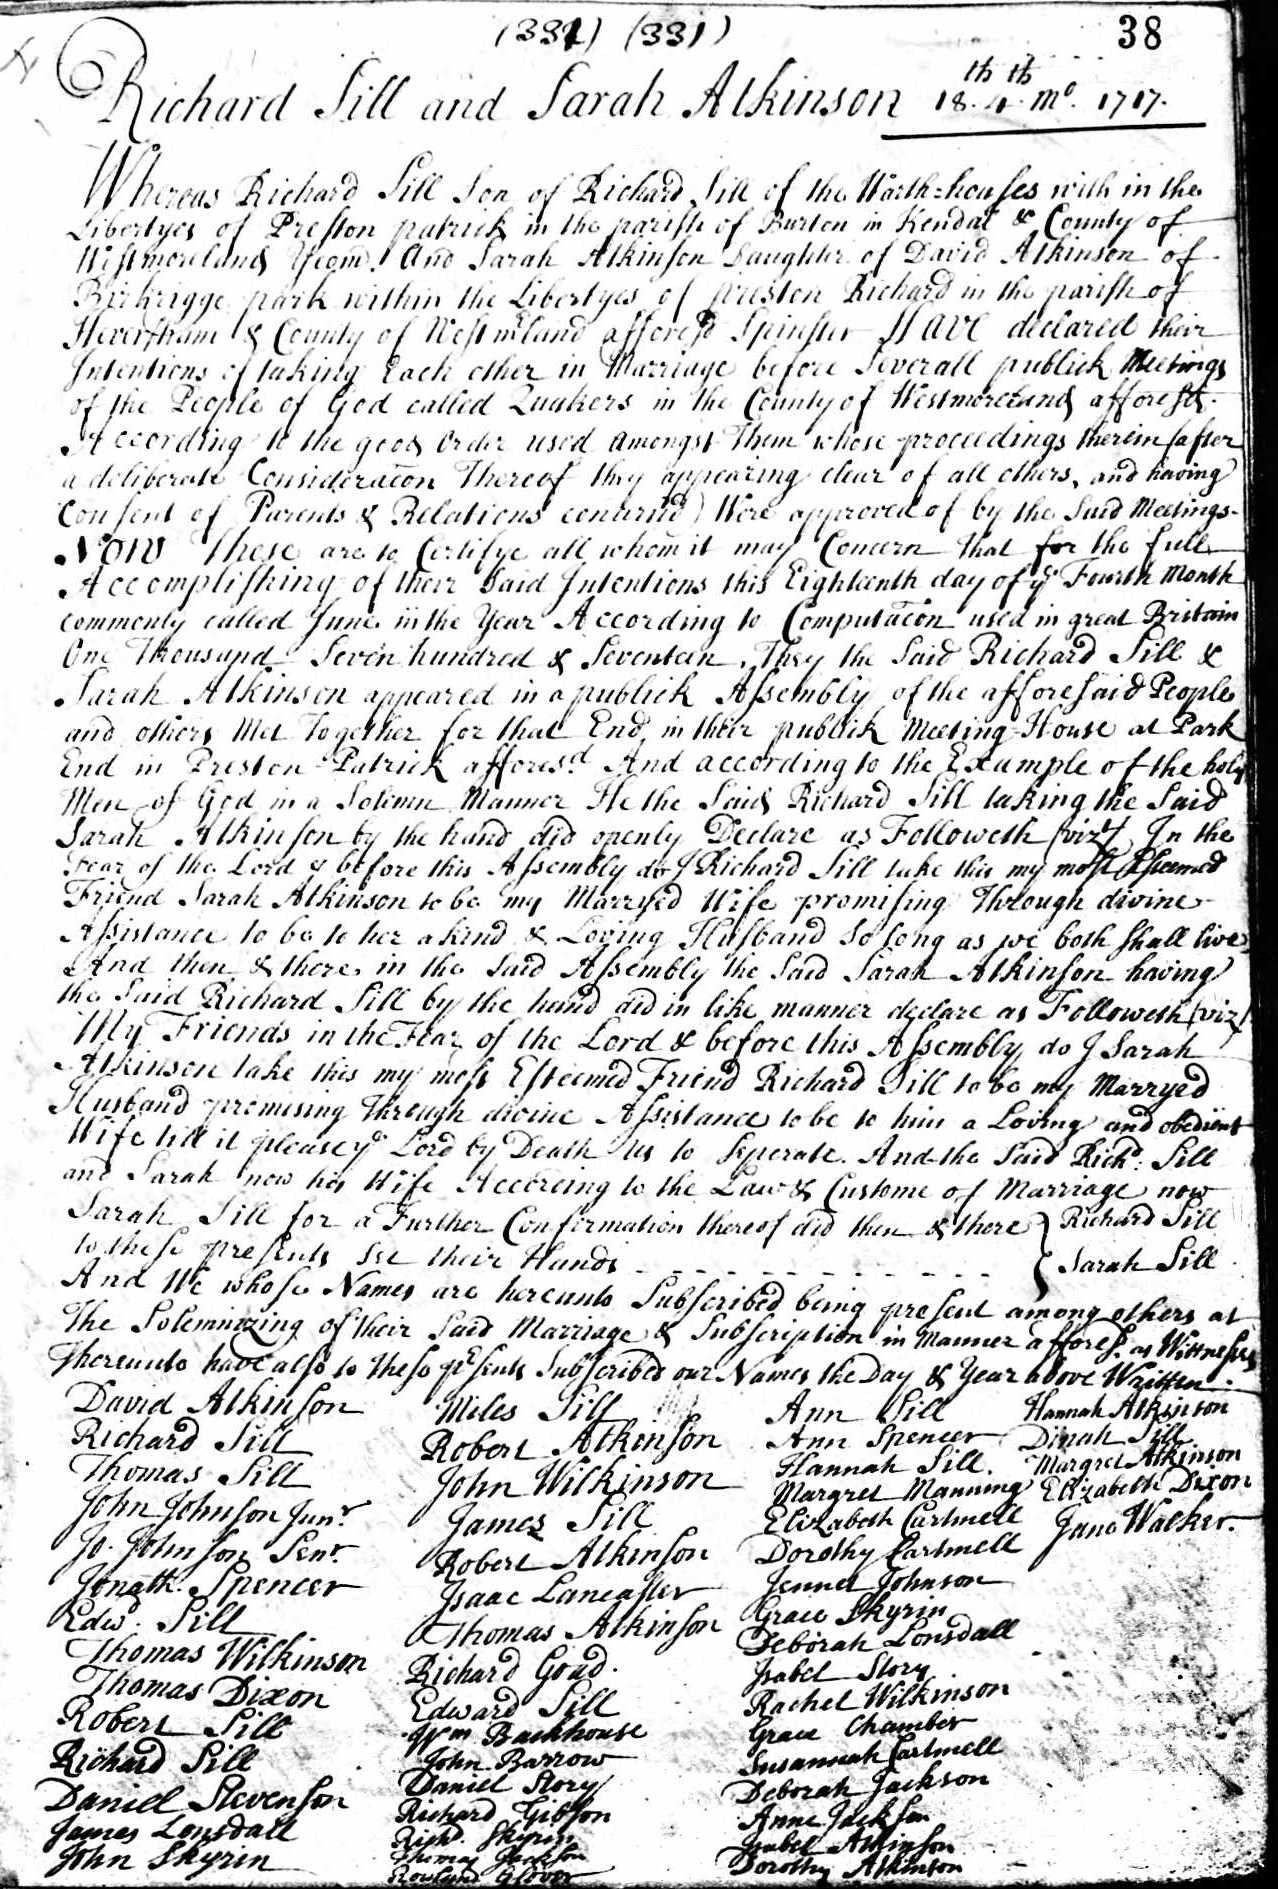 (331) (331)
38
Richard Sill and Sarah Atkinson 18th. 4th. mo. 1717.
Whereas Richard Sill Son of Richard Sill of the Warth=houses with in the
Libertyes of Preston patrick in the parish of Burton in Kendal & County of
Westmoreland Yeom. And Sarah Atkinson Daughter of David Atkinson of
Birkrigge park within the Libertyes of preston Richard in the parish of
Heversham & County of Westmland afforesd Spinster HAVE declared their
Intentions of taking Each other in Marriage before Severall publick Meetings
of the People of God called Quakers in the County of Westmoreland afforesd.
According to the good Order used amongst Them whose proceedings therein (after
a deliberate Consideracon Thereof they appearing clear of all others, and having
Consent of Parents & Relations concernd) Were approved of by the Said Meetings-
NOW These are to Certifye all whom it may Concern That for the full
Accomplishing of their Said Intentions this Eighteenth day of ye Fourth Month
commonly called June in the Year According to Computacon used in great Britain
One Thousand Seven hundred & Seventeen, They the Said Richard Sill &
Sarah Atkinson appeared in a publick Assembly of the afforesaid People
and others Met Together for that End in their publick Meeting-House at Park
End in Preston-Patrick affores.d And according to the Example of the holy
Men of God in a Solemn Manner He the Said Richard Sill taking the Said
Sarah Atkinson by the hand did openly Declare as Followeth (vizt) In the
Fear of the Lord & before this Assembly do I Richard Sill take this my most Esteemed
Friend Sarah Atkinson to be my Marryed Wife promising Through divine
Assistance to be to her a kind & Loving Husband So long as we both shall live
And then & there in the Said Assembly the Said Sarah Atkinson having
the Said Richard Sill by the hand did in like manner declare as Followeth (vizt)
My Friends in the Fear of the Lord & before this Assembly do I Sarah
Atkinson take this my most Esteemed Friend Richard Sill to be my Marryed
Husband promising Through divine Assistance to be to him a Loving and obedient
Wife till it please ye Lord by Death us to Seperate. And the Said Richd: Sill
and Sarah now his Wife According to the Law & Custome of Marriage now
Sarah Sill for a Further Confirmation thereof did then & there } Richard Sill
to these presents set their Hands - - - - - - - - - - } Sarah Sill
And We whose Names are hereunto Subscribed being present among others at
The Solemnizing of their Said Marriage & Subscription in Manner affores.d as Wittnesses
Thereunto have also to These psents Subscribed our Names the Day & Year above Written.
David Atkinson
Richard Sill
Thomas Sill
John Johnson Junr.
Jo. Johnson Senr.
Jonath. Spencer
Edwd. Sill
Thomas Wilkinson
Thomas Dixon
Robert Sill
Richard Sill
Daniel Stevenson
James Lonsdall
John Skyrin
Miles Sill
Robert Atkinson
John Wilkinson
James Sill
Robert Atkinson
Isaac Lancaster
Thomas Atkinson
Richard Goad.
Edward Sill
Wm Backhouse
John Barrow
Daniel Story
Richard Gibson
Richd. Skyrin
Thomas Jackson
Rowland Glover
Ann Sill
Ann Spencer
Hannah Sill.
Margret Manning
Elizabeth Cartmell
Dorothy Cartmell
Jennet Johnson
Grace Skyrin
Deborah Lonsdall
Isabel Story
Rachel Wilkinson
Grace Chamber
Susannah Cartmell
Deborah Jackson
Anne Jackson
Isabel Atkinson
Dorothy Atkinson
Hannah Atkinson
Dinah Sill
Margret Atkinson
Elizabeth Dixon
Jane Walker.